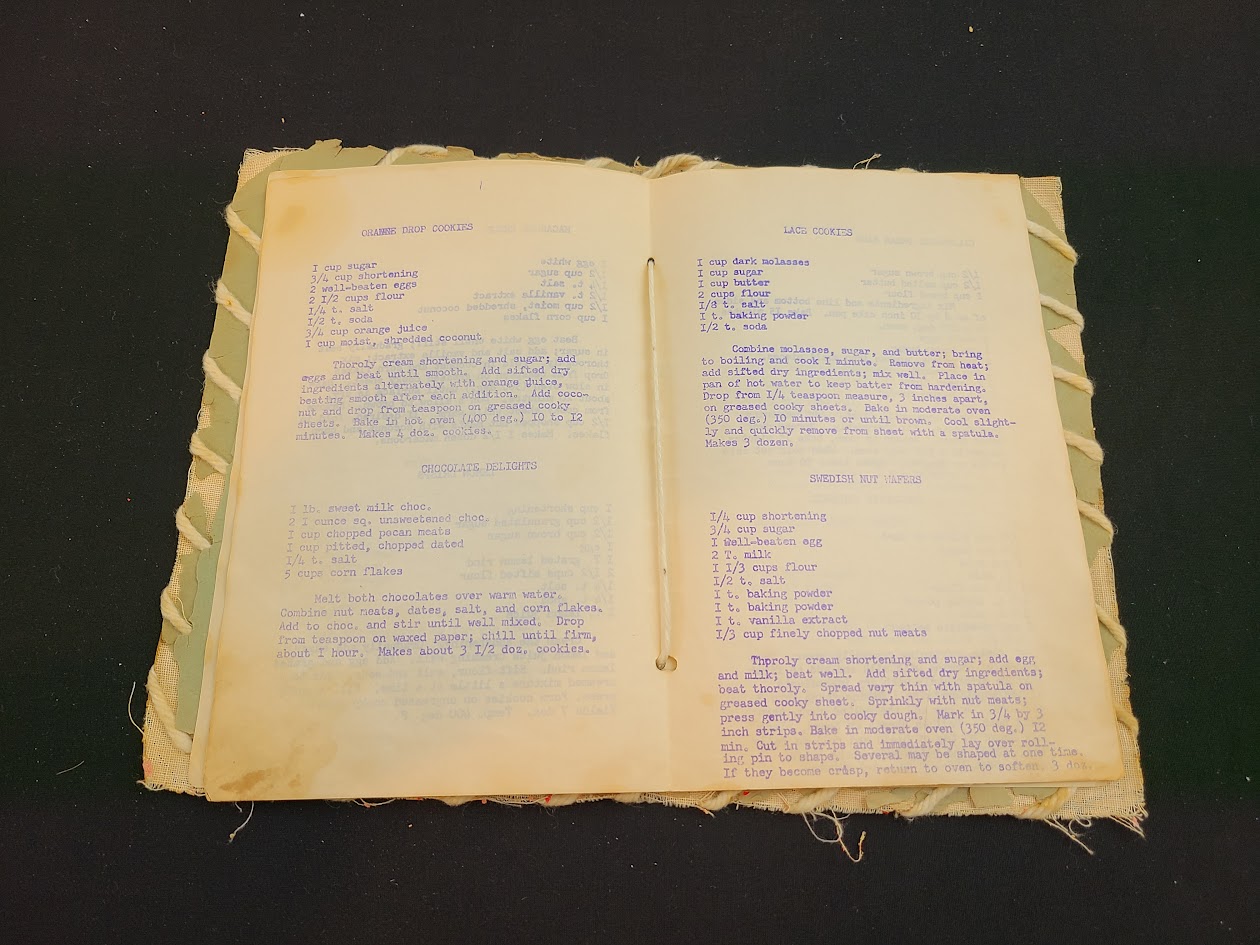 ORANGE DROP COOKIES
I cup sugar
3/4 cup shortening
2 well-beaten eggs
2 I/2 cups flour
I/4 t. salt
I/2 t. soda
3/4 cup orange juice
I cup moist, shredded coconut
Thoroly cream shortening and sugar; add
eggs and beat until smooth. Add sifted dry
ingredients alternately with orange juice,
beating smooth after each addition. Add coco-
nut and drop from teaspoon on greased cooky
sheets. Bake in hot oven (400 deg.) IO to I2
minutes. Makes 4 doz. cookies.
CHOCOLATE DELIGHTS
I lb. sweet milk choc.
2 I ounce sq. unsweetened choc.
I cup chopped pecan meats
I cup pitted, chopped dated
I/4 t. salt
5 cups corn flakes
Melt both chocolates over warm water.
Combine nut meats, dates, salt, and corn flakes.
Add to choc. and stir until well mixed. Drop
from teaspoon on waxed paper; chill until firm,
about I hour. Makes about 3 I/2 doz. cookies.
LACE COOKIES
I cup dark molasses
I cup sugar
I cup butter
2 cups flour
I/8 t. salt
I t. baking powder
I/2 t. soda
Combine molasses, sugar, and butter; bring
to boiling and cook I minute. Remove from heat;
add sifted dry ingredients; mix well. Place in
pan of hot water to keep batter from hardening.
Drop from I/4 teaspoon measure, 3 inches apart,
on greased cooky sheets. Bake in moderate oven
(350 deg.) IO minutes or until brown. Cool slight-
ly and quickly remove from sheet with a spatula.
Makes 3 dozen.
SWEDISH NUT WAFERS
I/4 cup shortening
3/4 cup sugar
I well-beaten egg
2 T. milk
I I/3 cups flour
I/2 t. salt
I t. baking powder
I t. baking powder
I t. vanilla extract
I/3 cup finely chopped nut meats
Thproly cream shortening and sugar; add egg
and milk; beat well. Add sifted dry ingredients;
beat thoroly. Spread very thin with spatula on
greased cooky sheet. Sprinkly with nut meats;
press gently into cooky dough. Mark in 3/4 by 3
inch strips. Bake in moderate oven (350 deg.) I2
min. Cut in strips and immediately lay over roll-
ing pin to shape. Several may be shaped at one time.
If they become crisp, return to oven to soften. 3 doz.